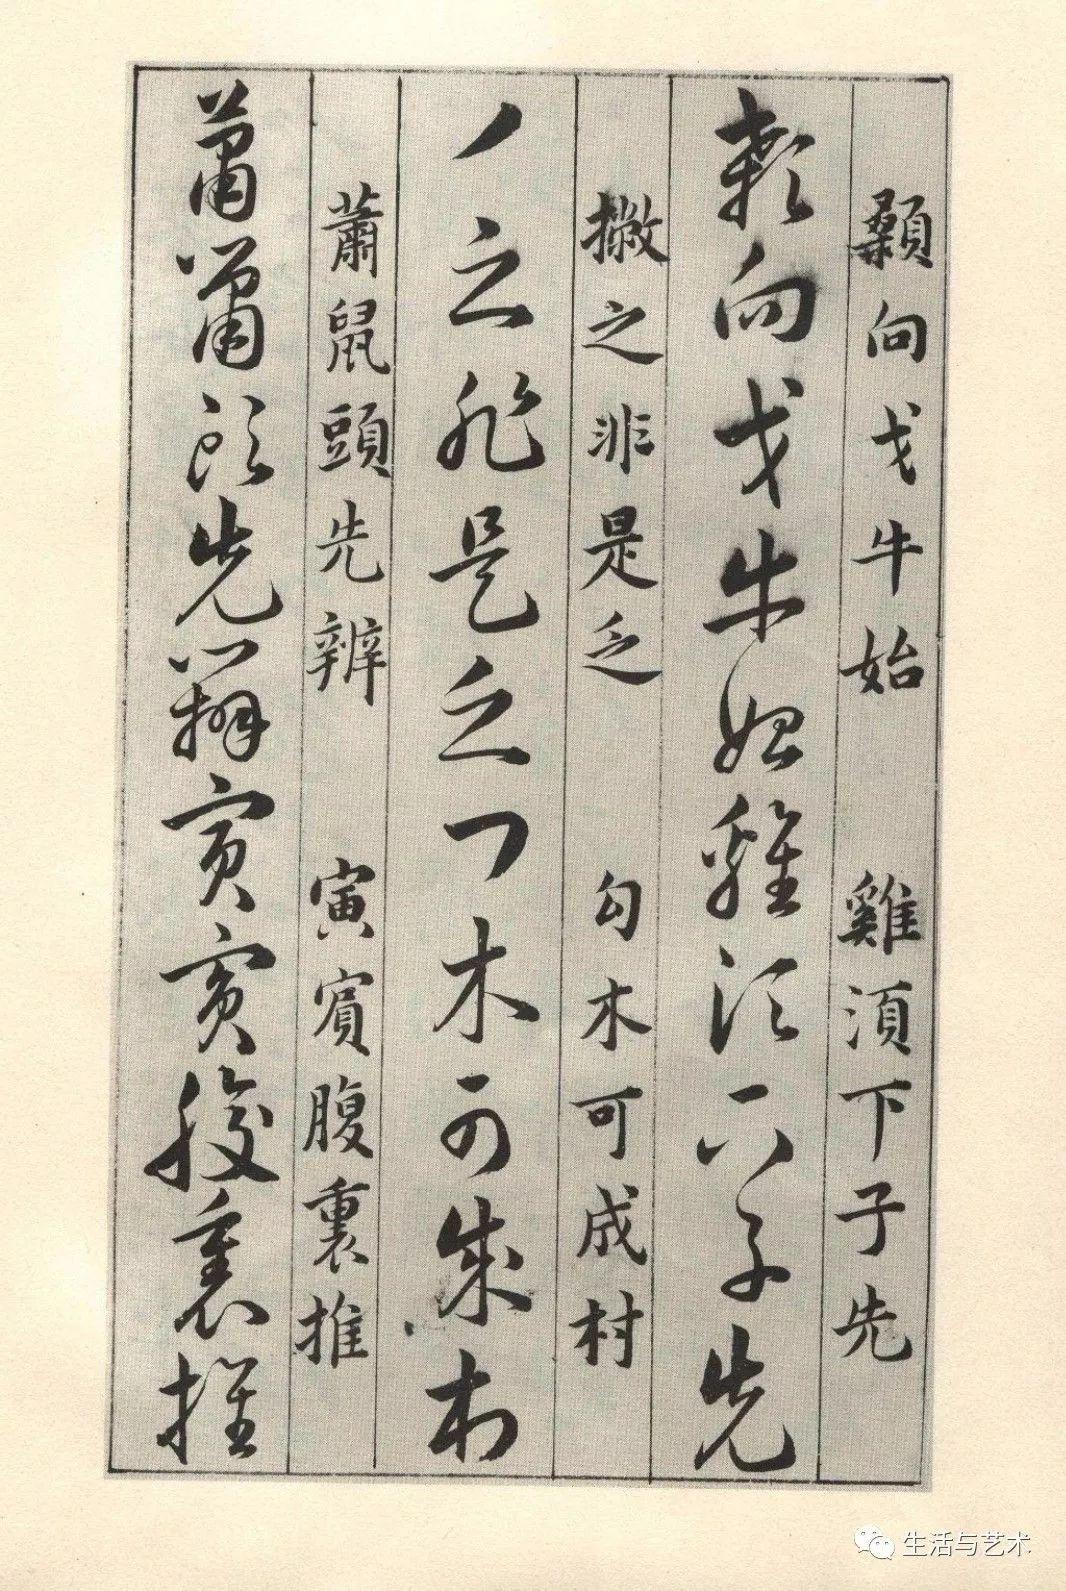 顙向戈牛始 雞湏下子先
顙向戈牛始雞湏下子先
撇之非是乏 勾木可成村
丿之非是乏㇆木可成村
蕭鼠頭先辨 寅賓腹裏推
蕭鼠頭先辨寅賓腹裏推
生活与艺术